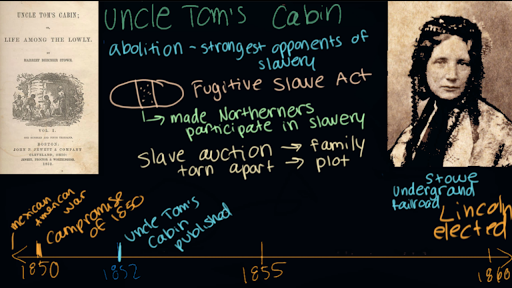 UNCLE TOM'S CABIN;
OR,
LIFE AMONG THE LOWLY.
BY
HARRIET BEECHER STOWE.
VOL. I.
BOSTON:
JOHN P. JEWETT & COMPANY
CLEVELAND, OHIO:
JEWETT, PROCTOR & WORTHINGTON.
1852.
Uncle Tom's Cabin
abolition - strongest opponents of
slavery
Fugitive Slave Act
made Northerners
participate in slavery
Slave auction → family
torn apart → plot
Stowe
underground
railroad
mexican
american
war
Compromise
of 1850
Uncle Tom's
Cabin
published
Lincoln
elected
1850
1852
1855
1860